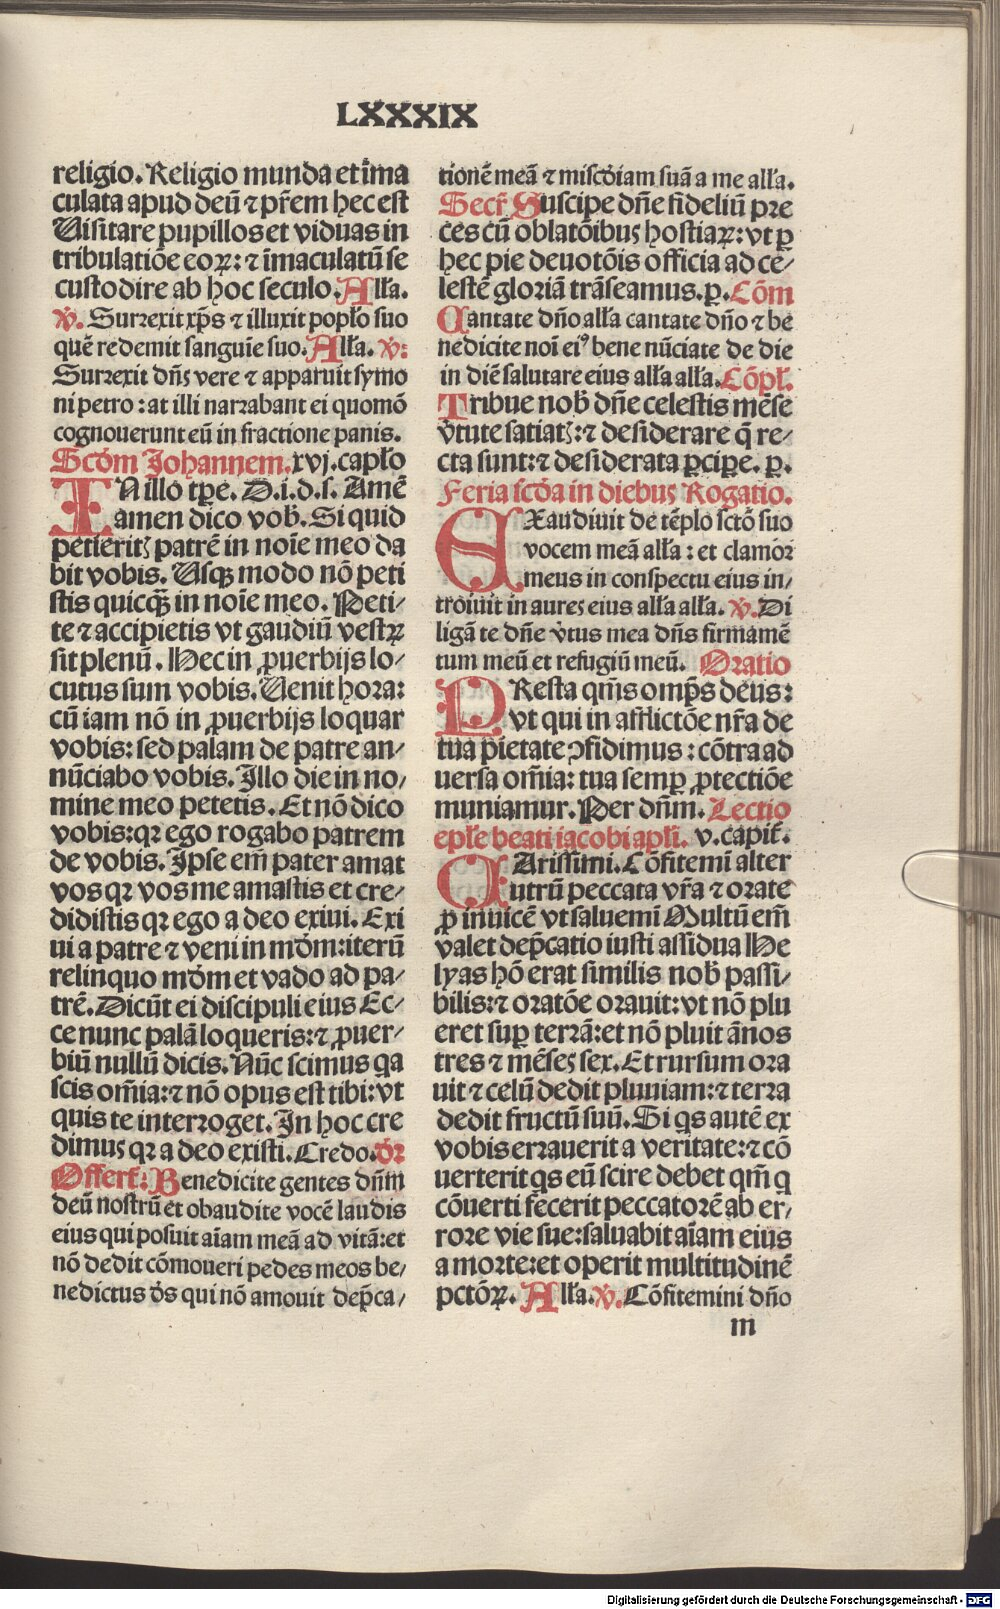 LXXXIX
religio. Religio munda et īma
culata apud deū ⁊ pr̄em hec est
Uisitare pupillos et viduas in
tribulatiōe eoꝝ: ⁊ īmaculatū se
custodire ab hoc seculo. Alła.
v̓. Surrexit xp̄s ⁊ illuxit popło suo
quē redemit sanguīe suo. Alła. v̓:
Surrexit dn̄s vere ⁊ apparuit symo
ni petro: at illi narrabant ei quomō
cognouerunt eū in fractione panis.
Scd̓m Johannem. xvj. capło
IN illo tꝑe. D. i. d. s. Amē
amen dico vob̓. Si quid
petieritꝫ patrē in noīe meo da
bit vobis. Usqꝫ modo nō peti
stis quicqꝫ̄ in noīe meo. Peti/
te ⁊ accipietis vt gaudiū vestꝝ
sit plenū. Hec in ꝓuerbijs lo/
cutus sum vobis. Uenit hora:
cū iam nō in ꝓuerbijs loquar
vobis: sed palam de patre an/
nūciabo vobis. Illo die in no/
mine meo petetis. Et nō dico
vobis: qꝛ ego rogabo patrem
de vobis. Ipse em̄ pater amat
vos qꝛ vos me amastis et cre/
didistis qꝛ ego a deo exiui. Exi
ui a patre ⁊ veni in mūd̓m: iterū
relinquo mūd̓m et vado ad pa/
trē. Dicūt ei discipuli eius Ec/
ce nunc palā loqueris: ⁊ ꝓuer/
biū nullū dicis. Nūc scimus qa
scis om̄ia: ⁊ nō opus est tibi: vt
quis te interroget. In hoc cre
dimus qꝛ a deo existi. Credo. d̓r
Offert̓: Benedicite gentes dn̄m
deū nostrū et obaudite vocē laudis
eius qui posuit aīam meā ad vitā: et
nō dedit cōmoueri pedes meos be/
nedictus d̓s qui nō amouit dep̄ca/
tionē meā ⁊ misc̓diam suā a me alła.
Secr̄ Suscipe dn̄e fideliū pre
ces cū oblatōibus hostiaꝝ: vt ꝑ
hec pie deuotōis officia ad ce/
lestē gloriā trāseamus. ꝑ. Cōm
Cantate dn̄o alła cantate dn̄o ⁊ be
nedicite noī eiꝰ bene nūciate de die
in diē salutare eius alła alła. Cōpł.
Tribue nob̓ dn̄e celestis mēse
v̓tute satiatꝫ: ⁊ desiderare q̄ re/
cta sunt: ⁊ desiderata ꝑciꝑe. ꝑ.
Feria scd̓a in diebus Rogatio.
EXaudiuit de tēplo sctō suo
vocem meā alła: et clamor
meus in conspectu eius in/
troiuit in aures eius alła alła. v̓. Di
ligā te dn̄e v̓tus mea dn̄s firmamē
tum meū et refugiū meū. Oratio
PResta qm̄s omp̄s deus:
vt qui in afflictōe nr̄a de
tua pietate ꝯfidimus: cōtra ad
uersa om̄ia: tua semꝑ ꝓtectiōe
muniamur. Per dn̄m. Lectio
epłe beati iacobi apłi. v. capit̓.
CArissimi. Cōfitemī alter
utrū peccata vr̄a ⁊ orate
ꝓ inuicē vt saluemī Multū em̄
valet dep̄catio iusti assidua He
lyas hō erat similis nob̓ passi/
bilis: ⁊ oratōe orauit: vt nō plu
eret suꝑ terrā: et nō pluit ānos
tres ⁊ mēses sex. Et rursum ora
uit ⁊ celū dedit pluuiam: ⁊ terra
dedit fructū suū. Si qs autē ex
vobis errauerit a veritate: ⁊ cō
uerterit qs eū scire debet qm̄ q
cōuerti fecerit peccatorē ab er/
rore vie sue: saluabit aīam eius
a morte: et operit multitudinē
pctōꝝ. Alła. v̓. Cōfitemini dn̄o
m
Digitalisierung gefördert durch die Deutsche Forschungsgemeinschaft - DFG